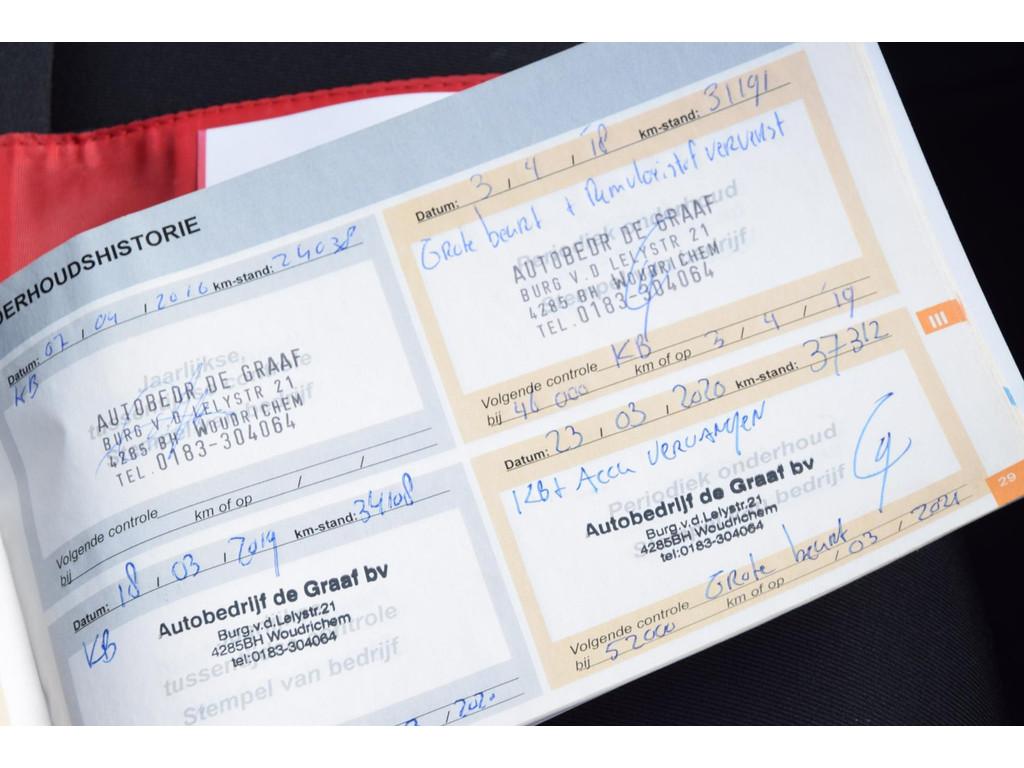 DERHOUDSHISTORIE
Datum: 07, 04, 2016 km-stand: 24038
KB
Jaarlijkse,
AUTOBEDR DE GRAAF
BURG V.D LELYSTR 21
4285 BH WOUDRICHEM
TEL.0183-304064
Volgende controle
bij km of op / /
Datum: 18, 03, 2019 km-stand: 34108
KB
Autobedrijf de Graaf bv
Burg.v.d.Lelystr.21
4285BH Woudrichem
tel:0183-304064
Stempel van bedrijf
, 2020
Datum: 3, 4, 18 km-stand: 31191
Grote beurt + Remvloeistof ververst
Periodiek onderhoud
AUTOBEDR DE GRAAF
BURG V.D LELYSTR 21
4285 BH WOUDRICHEM
TEL.0183-304064
Volgende controle KB
bij 46 000 km of op 3, 4, '19
Datum: 23, 03, 2020 km-stand: 37312
Accu VERVANGEN
Periodiek onderhoud
Autobedrijf de Graaf bv
Burg.v.d.Lelystr.21
4285BH Woudrichem
tel:0183-304064
Volgende controle Grote beurt
bij 52000 km of op , 03, 2021
III
29